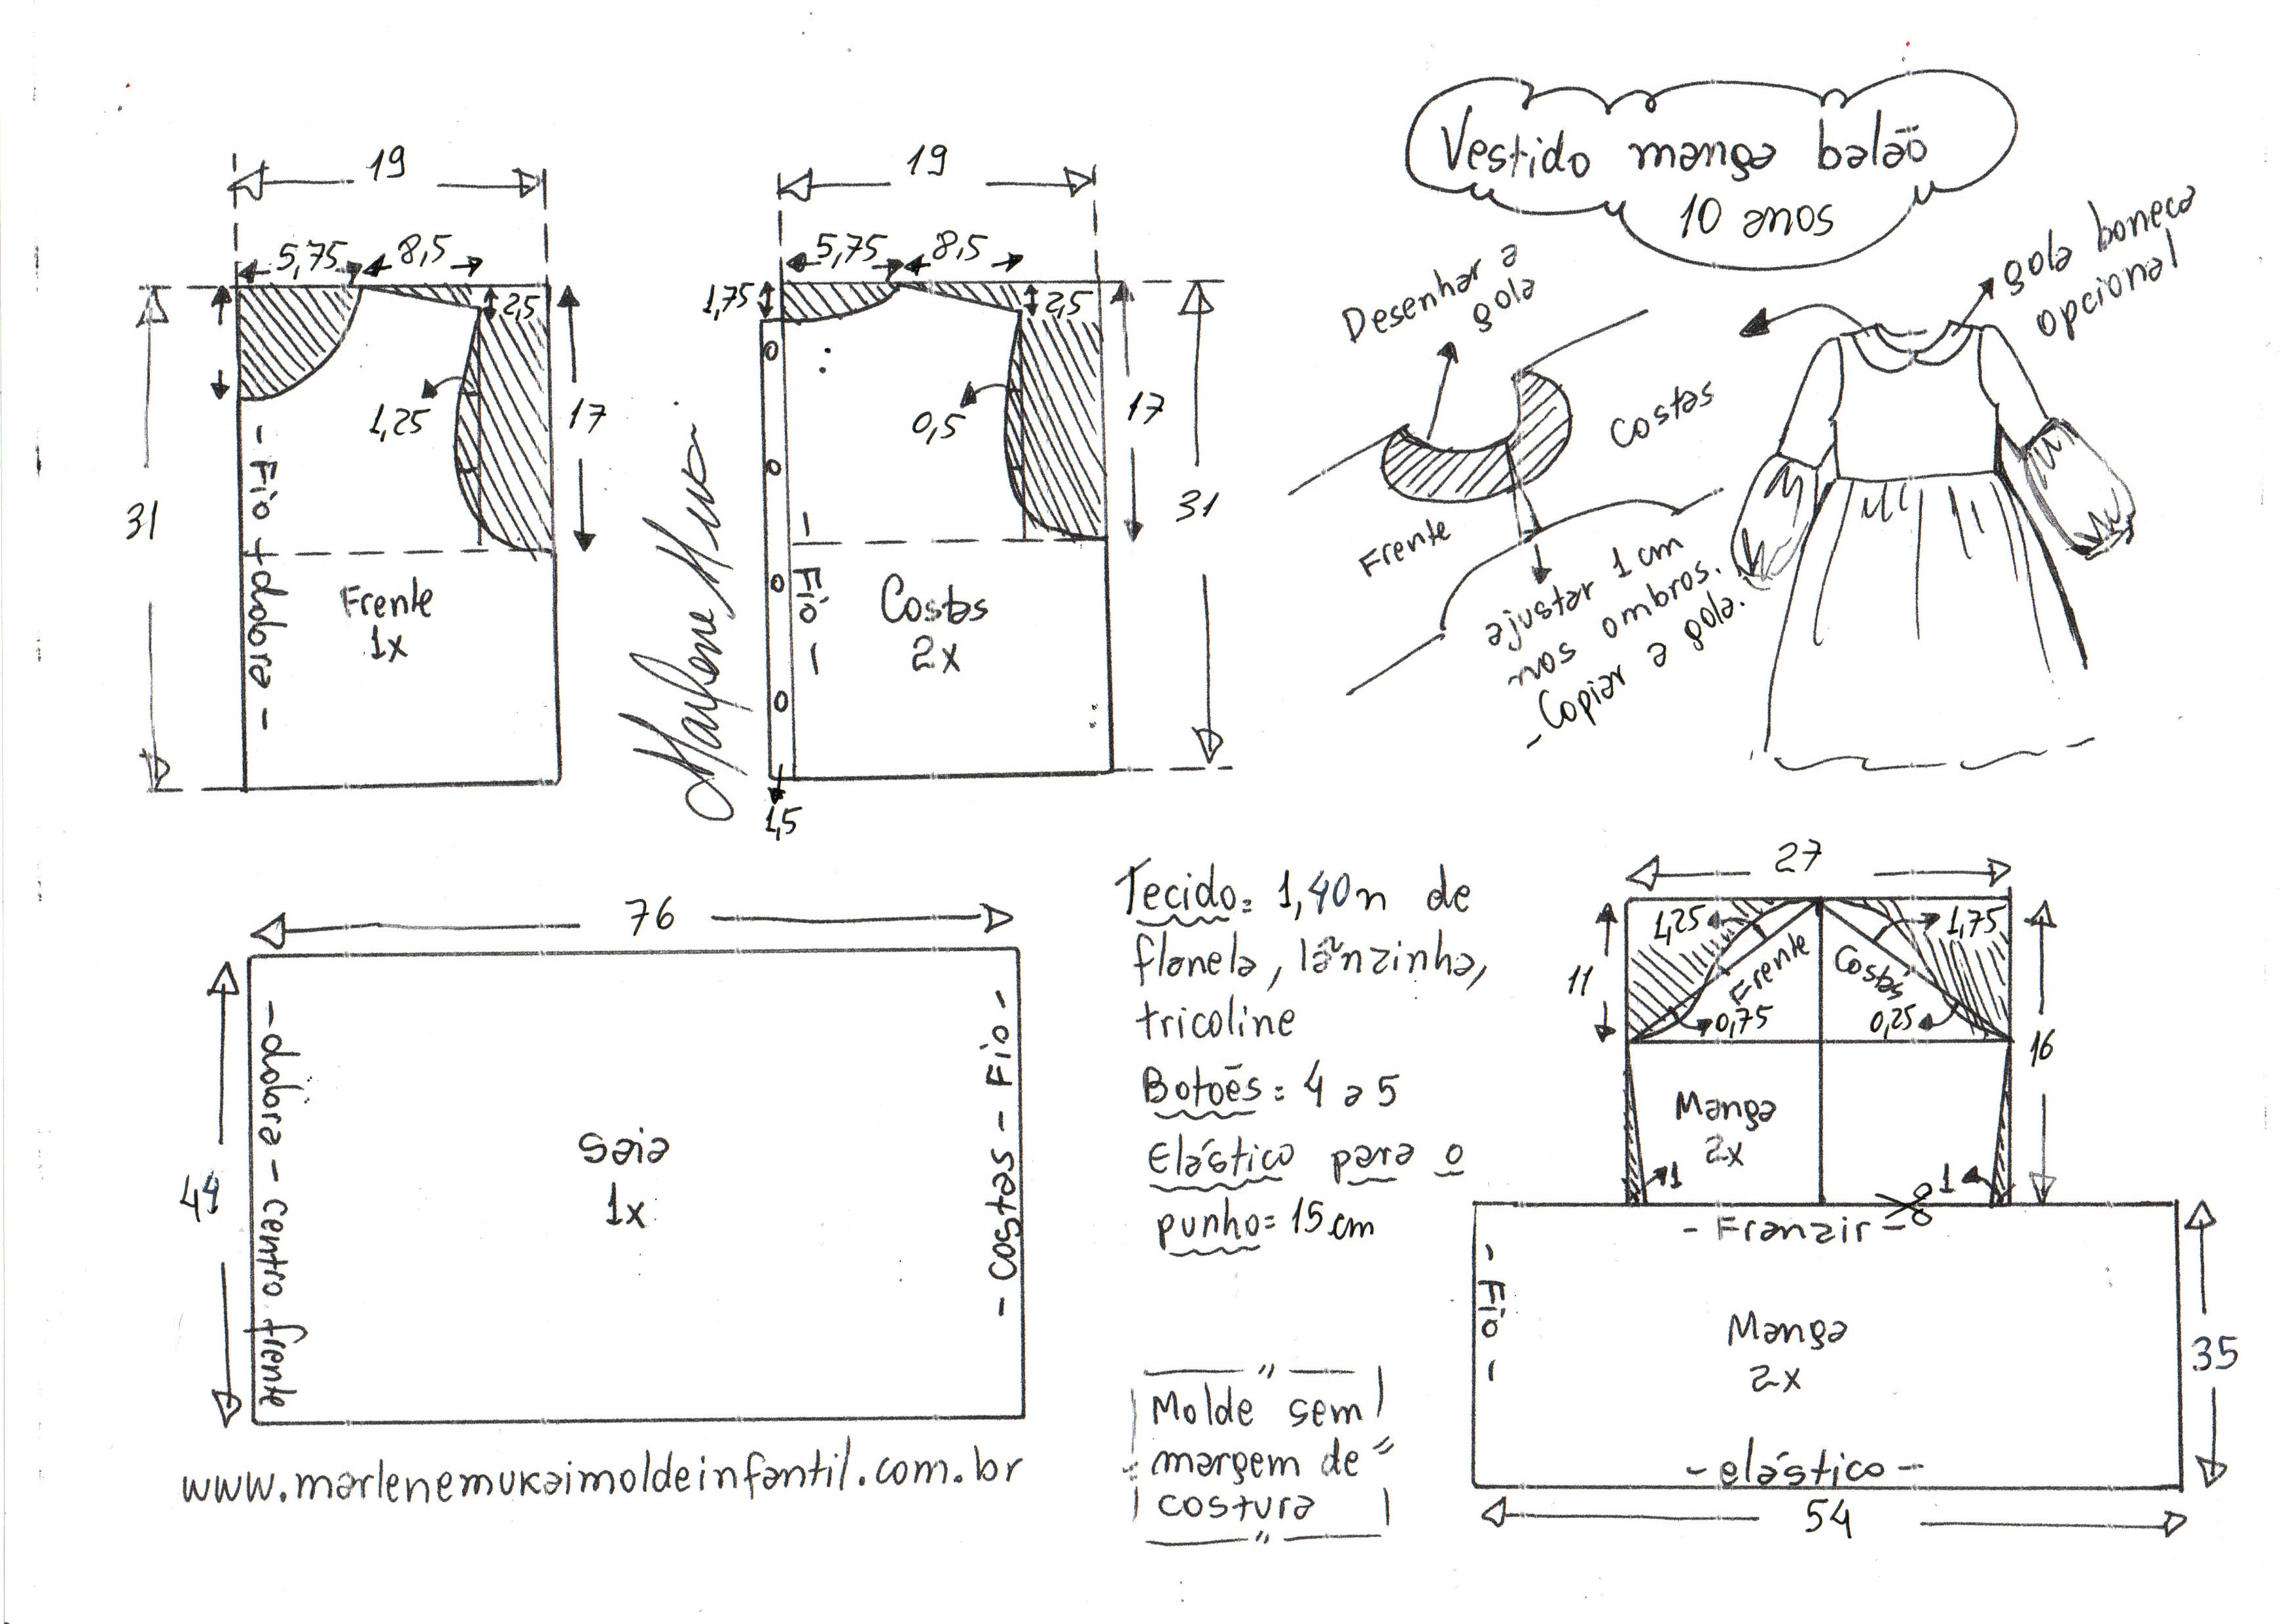 Vestido manga balão
10 anos
19
5,75
8,5
2,5
1,25
17
31
- Fio - dobra -
Frente
1x
19
5,75
8,5
1,75
2,5
0,5
17
31
- Fio -
Costas
2x
1,5
Desenhar a
gola
Costas
Frente
ajustar 1 cm
nos ombros.
- Copiar a gola.
gola boneca
opcional
76
44
- dobra - centro frente
Saia
1x
- Costas - Fio -
www.marlenemukaimoldeinfantil.com.br
Tecido= 1,40m de
flanela, lãnzinha,
tricoline
Botões= 4 a 5
Elástico para o
punho= 15 cm
Molde sem
margem de
costura
27
1,25
1,75
11
Frente
Costas
0,75
0,25
16
Manga
2x
1
1
- Franzir -
- Fio -
Manga
2x
35
- elástico -
54